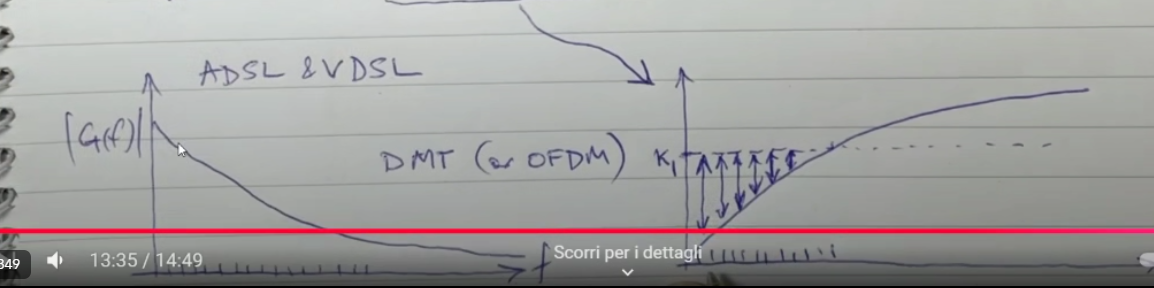 ADSL & VDSL
|G(f)|
DMT (or OFDM)
K₁
f
349
13:35 / 14:49
Scorri per i dettagli